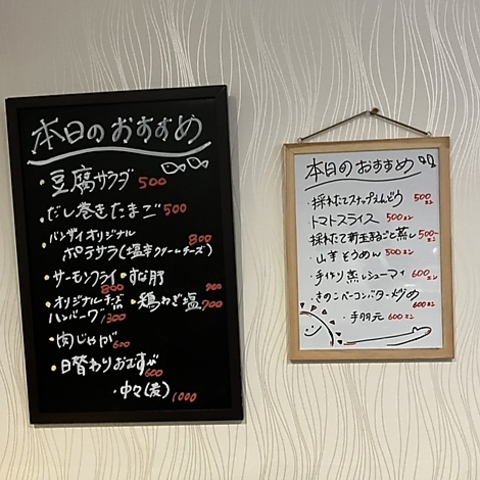 本日のおすすめ
・豆腐サラダ 500
・だし巻きたまご 500
・バンザイオリジナル
ポテサラ(塩辛クリームチーズ) 800
・サーモンフライ 800 ・すな肝 900
・オリジナルチーズ
ハンバーグ 1300 ・鶏ねぎ塩 700
・肉じゃが 600
・日替わりおでん 600
・中々(麦) 1000
本日のおすすめ
・採れたてスナップえんどう 500エン
トマトスライス 500エン
採れたて新玉まるごと蒸し 500エン
・山芋そうめん 500エン
・手作り蒸しシューマイ 600エン
・きのこベーコンバター炒め 600エン
・手羽元 600エン